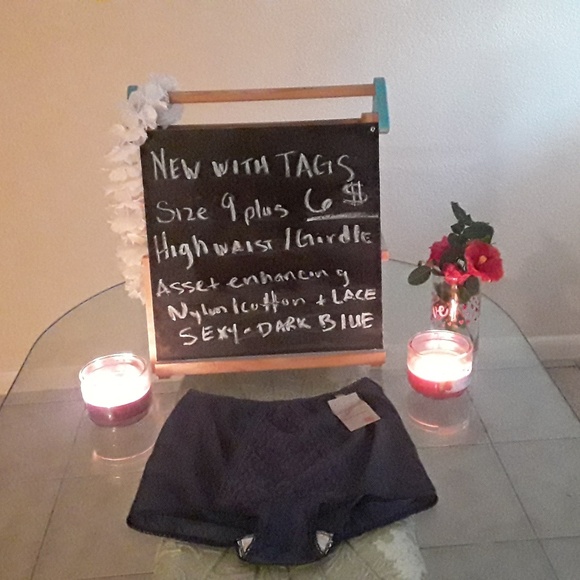 NEW WITH TAGS
Size 9 plus 6 $
High WAIST / Girdle
Asset enhancing
Nylon/cotton + LACE
SEXY - DARK BlUE